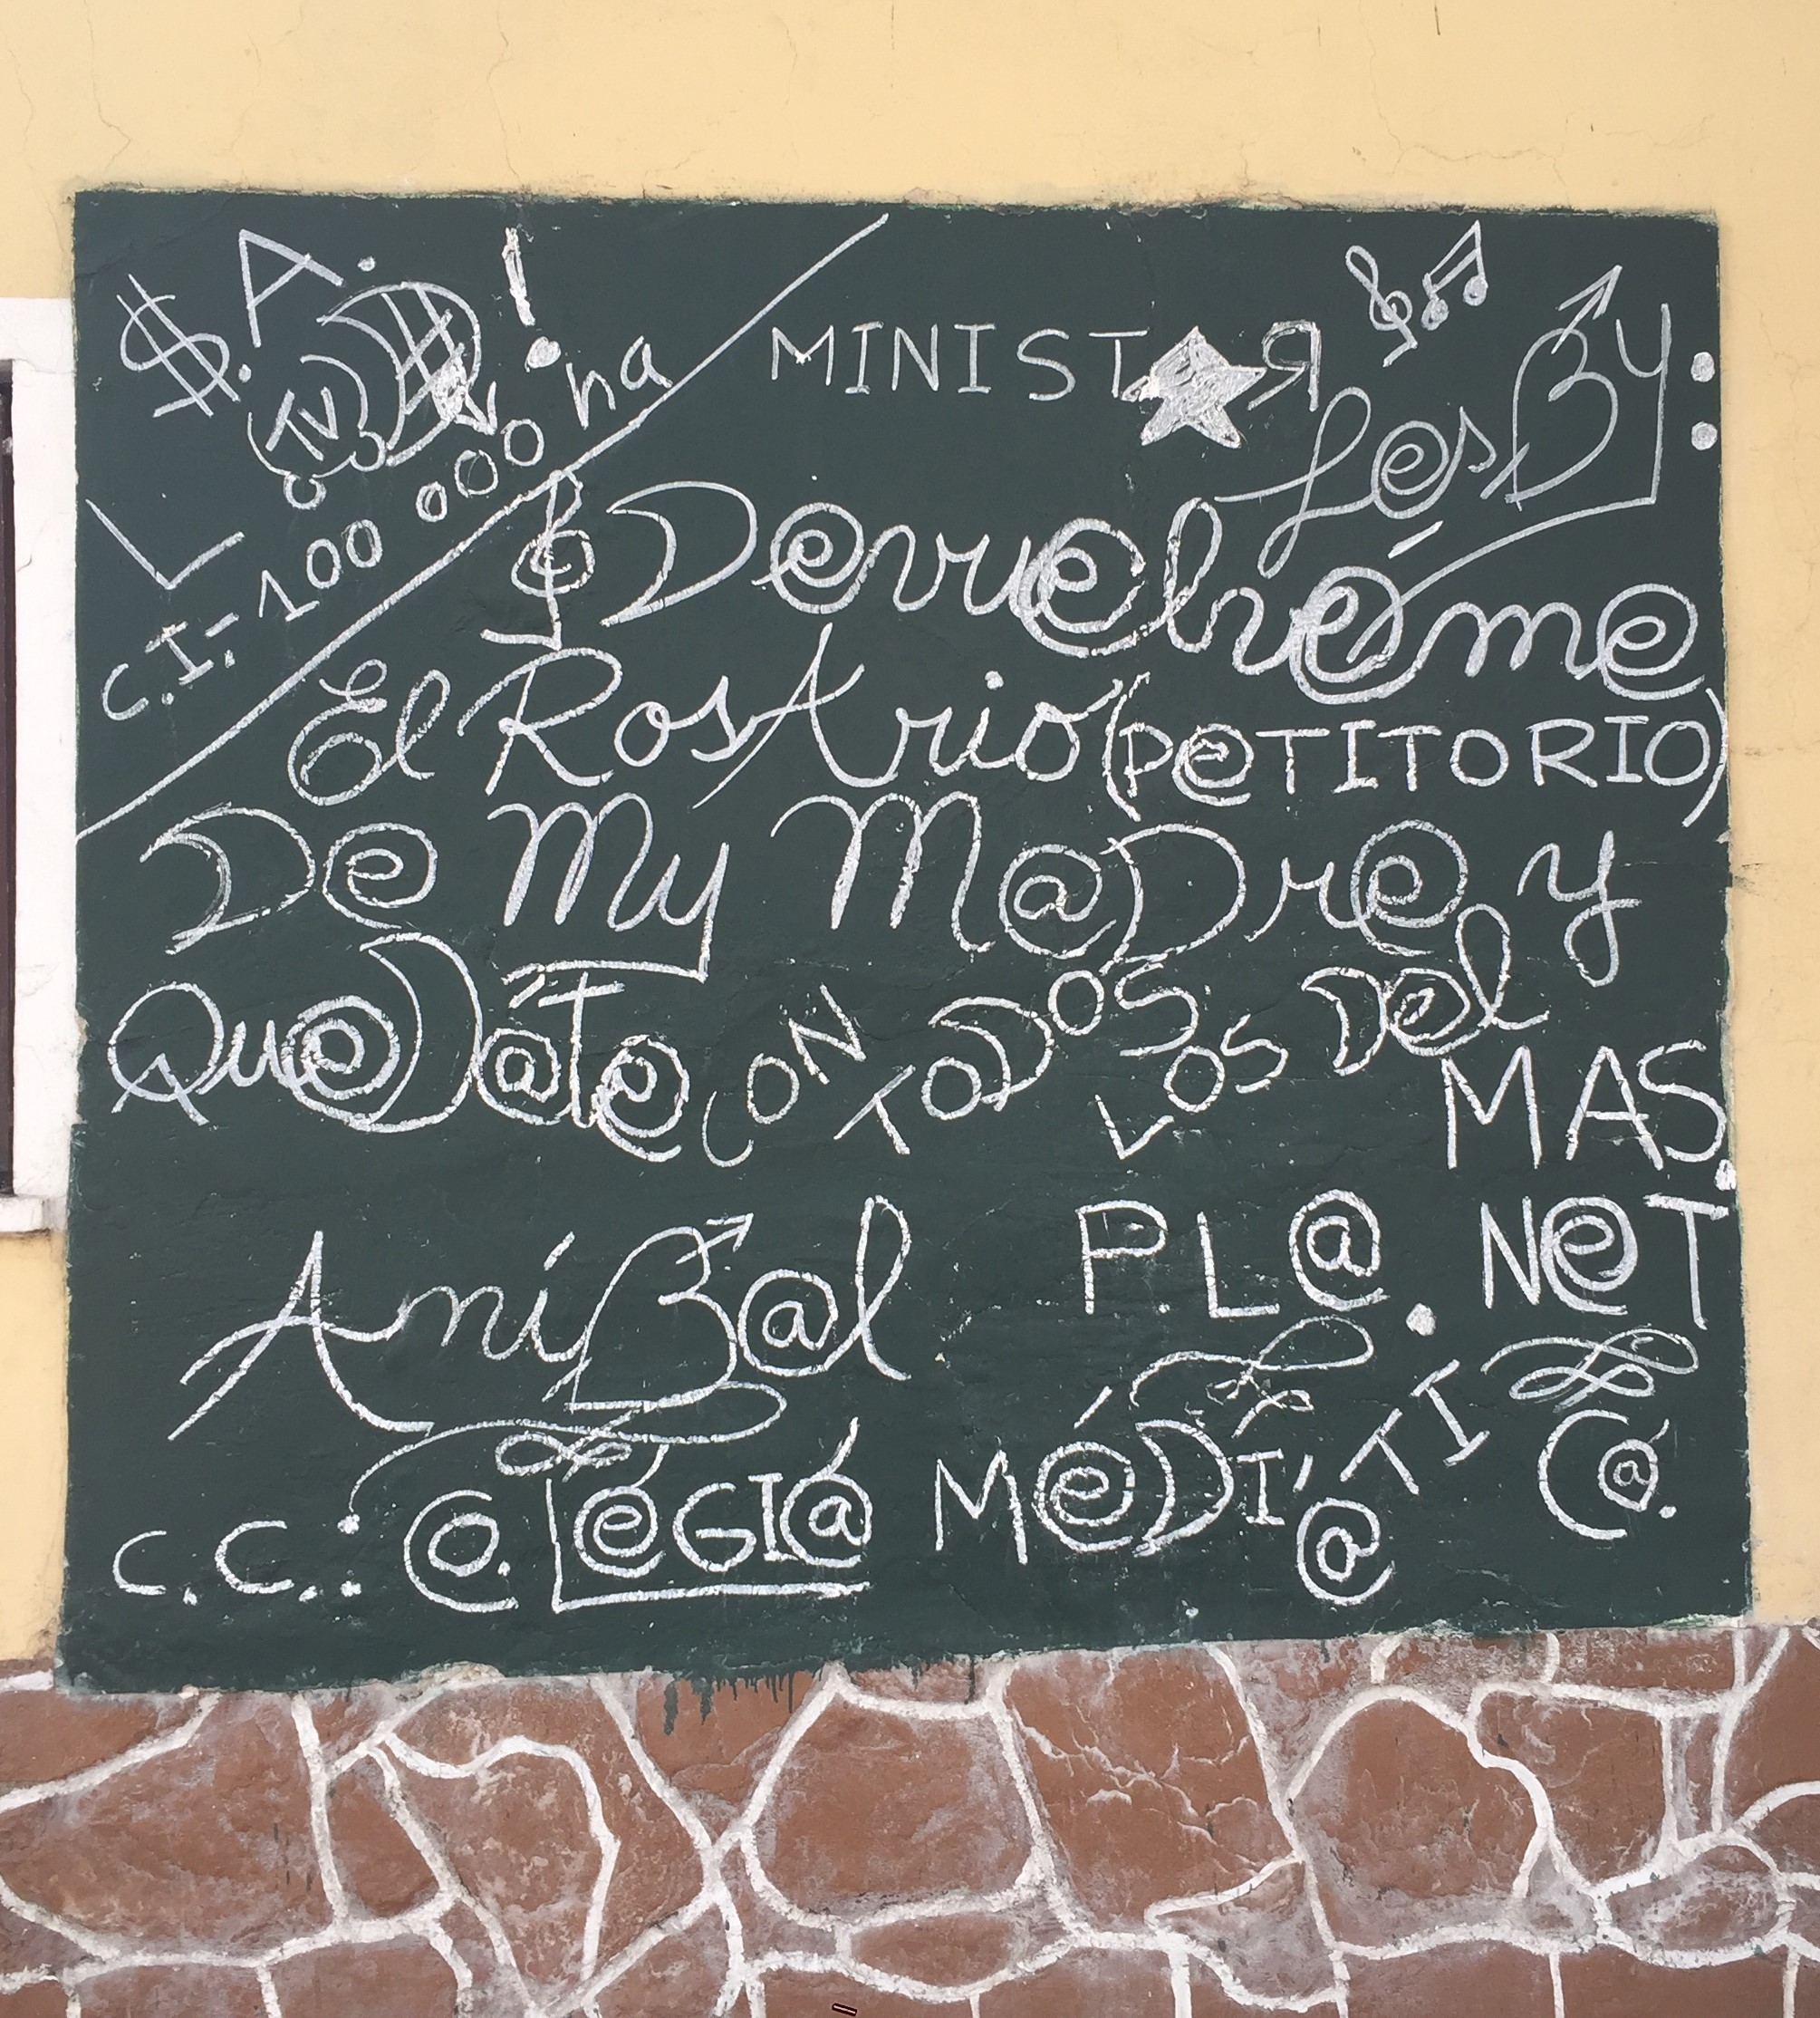 $.A. TV !
L
C.I.=100 000 ha
MINIST★R LesBY:
Devuelveme
El RosArio (PeTITORIO)
De My M@Dre y
QueD@te CON ToDos Los Del
MAS.
AniB@l P.L@. NeT
C.C.: CO.LeGI@ MéDI@TI C@.